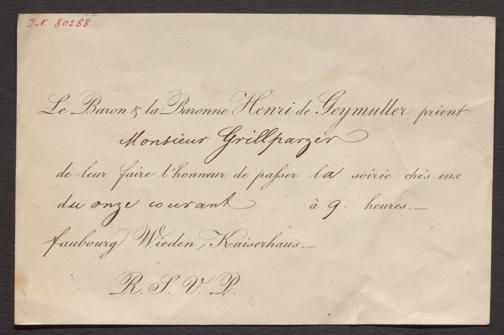 J.N 80288
Le Baron & la Baronne Henri de Geymuller prient
Monsieur Grillparzer
de leur faire l'honneur de passer la soirée chés eux
du onze courant à 9 heures.—
faubourg Wieden, Kaiserhaus.—
R. S. V. P.